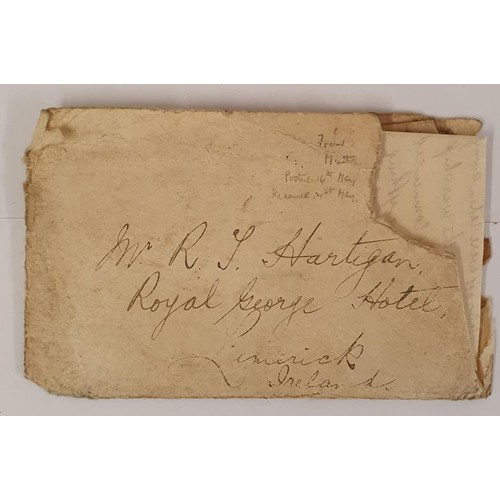 From
Posted 16th May
Received 21st May
Mr R. T. Hartigan,
Royal George Hotel,
Limerick
Ireland.